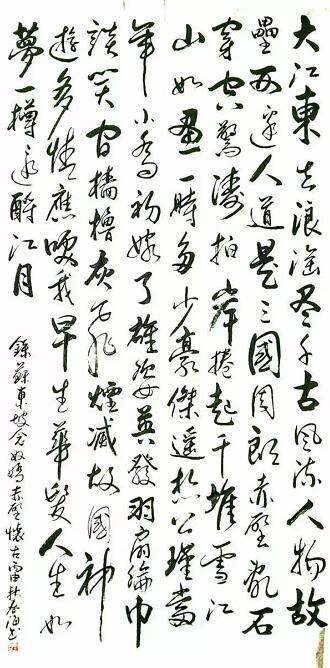 大江東去浪淘盡千古風流人物故
壘西邊人道是三國周郎赤壁亂石
穿空驚濤拍岸捲起千堆雪江
山如畫一時多少豪傑遙想公瑾當
年小喬初嫁了雄姿英發羽扇綸巾
談笑間檣櫓灰飛煙滅故國神
遊多情應笑我早生華髮人生如
夢一樽還酹江月
錄蘇東坡念奴嬌赤壁懷古